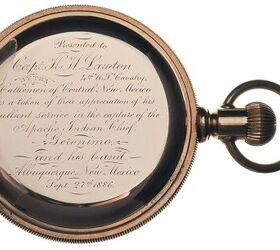 Presented to
Capt. H. W. Lawton
4th U.S. Cavalry,
Cattlemen of Central New Mexico
as a token of their appreciation of his
gallant service in the capture of the
Apache Indian Chief,
Geronimo,
and his band
Albuquerque, New Mexico
Sept. 27th 1886.